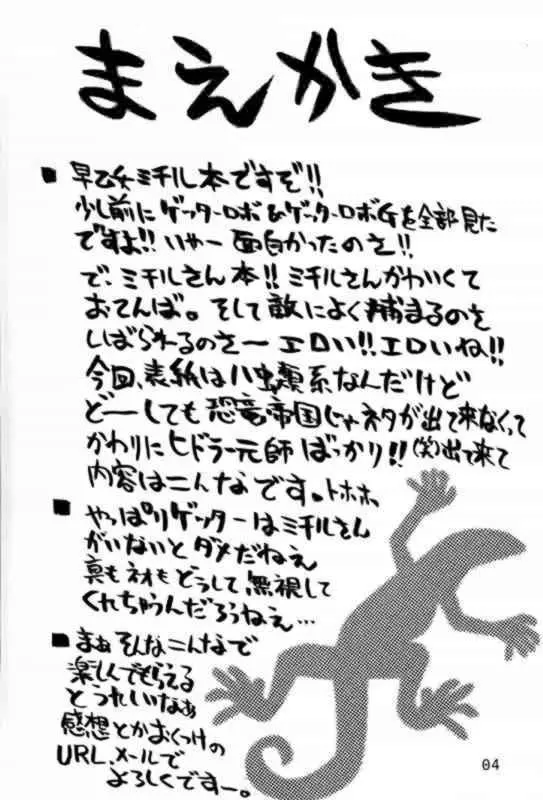 まえかき
■ 早乙女ミチル本ですぞ!!
少し前にゲッターロボ&ゲッターロボGを全部見た
ですよ!! いやー面白かったのさ!!
で、ミチルさん本!! ミチルさんかわいくて
おてんば。そして敵によく捕まるのさ
しばられるのさー エロい!! エロいね!!
今回、表紙はハ虫類系なんだけど
どーしても恐竜帝国じゃネタが出て来なくって
かわりにヒドラー元師ばっかり!!(笑)出て来て
内容はこんなです。トホホ。
■ やっぱりゲッターはミチルさん
がいないとダメだねえ
真もネオもどうして無視して
くれちゃうんだろうねえ…
■ まぁそんなこんなで
楽しんでもらえる
とうれしいなぁ
感想とかおくつけの
URL、メールで
よろしくですー。
04